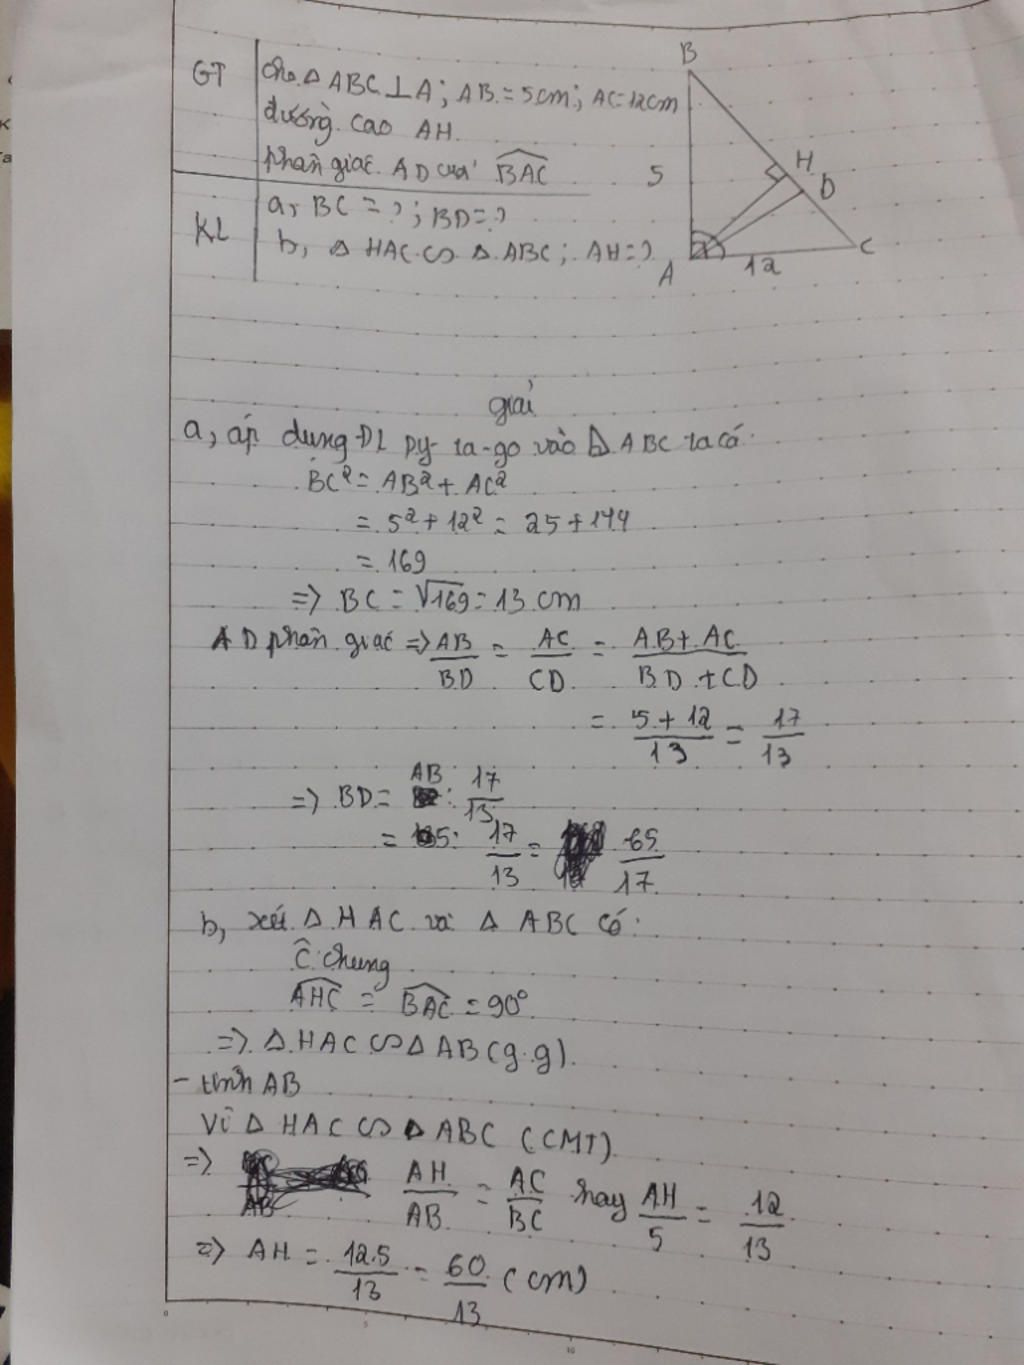 GT
cho Δ ABC ⊥ A; AB = 5cm; AC = 12cm
đường cao AH.
phân giác AD của BAC
KL
a, BC = ?; BD = ?
b, Δ HAC ∽ Δ ABC; AH = ?
B
H
D
5
A
12
C
giải
a, áp dụng ĐL py-ta-go vào Δ ABC ta có:
BC² = AB² + AC²
= 5² + 12² = 25 + 144
= 169
=> BC = √169 = 13 cm
AD phân giác => AB/BD = AC/CD = AB + AC/BD + CD
= 5 + 12/13 = 17/13
=> BD = AB : 17/13
= 5 : 17/13 = 65/17
b, xét Δ HAC và Δ ABC có:
Ĉ chung
AHC = BAC = 90°
=> Δ HAC ∽ Δ AB (g.g).
- tính AB
Vì Δ HAC ∽ Δ ABC (CMT)
=> AH/AB = AC/BC hay AH/5 = 12/13
=> AH = 12.5/13 = 60/13 (cm)
0
5
10